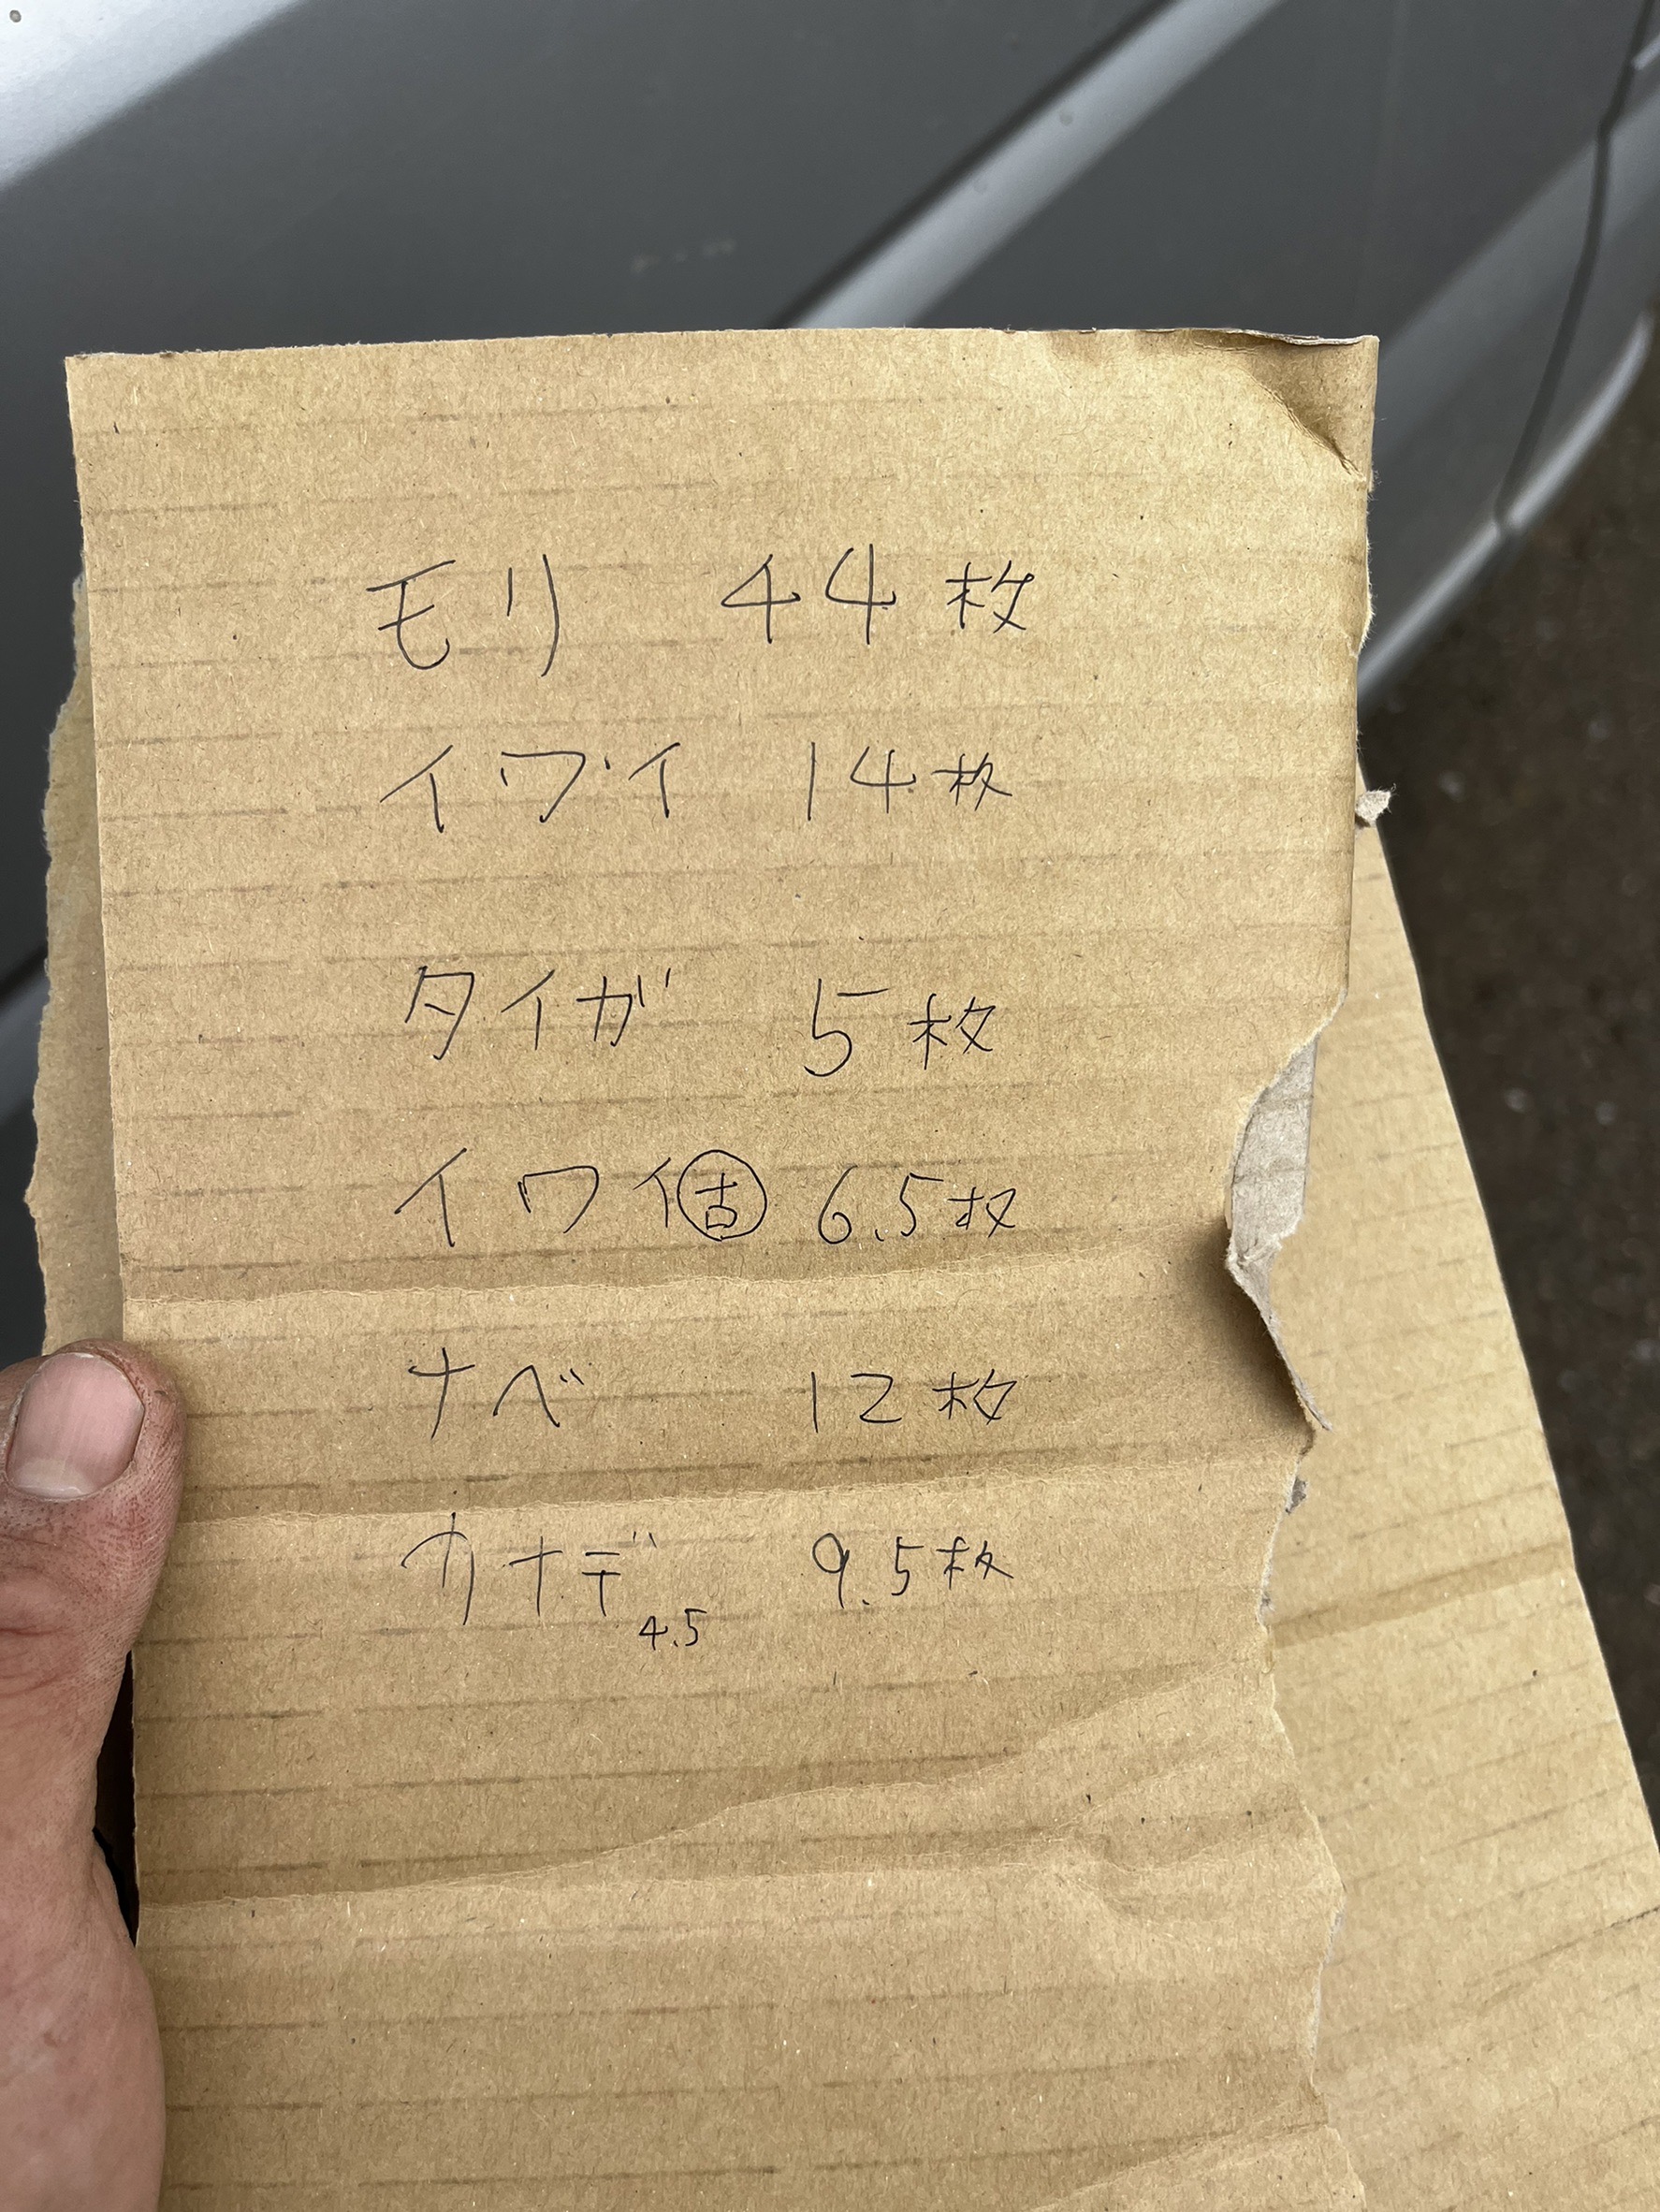 モリ 44枚
イワイ 14枚
タイガ 5枚
イワイ㊎ 6.5枚
ナベ 12枚
カナデ 9.5枚
4.5